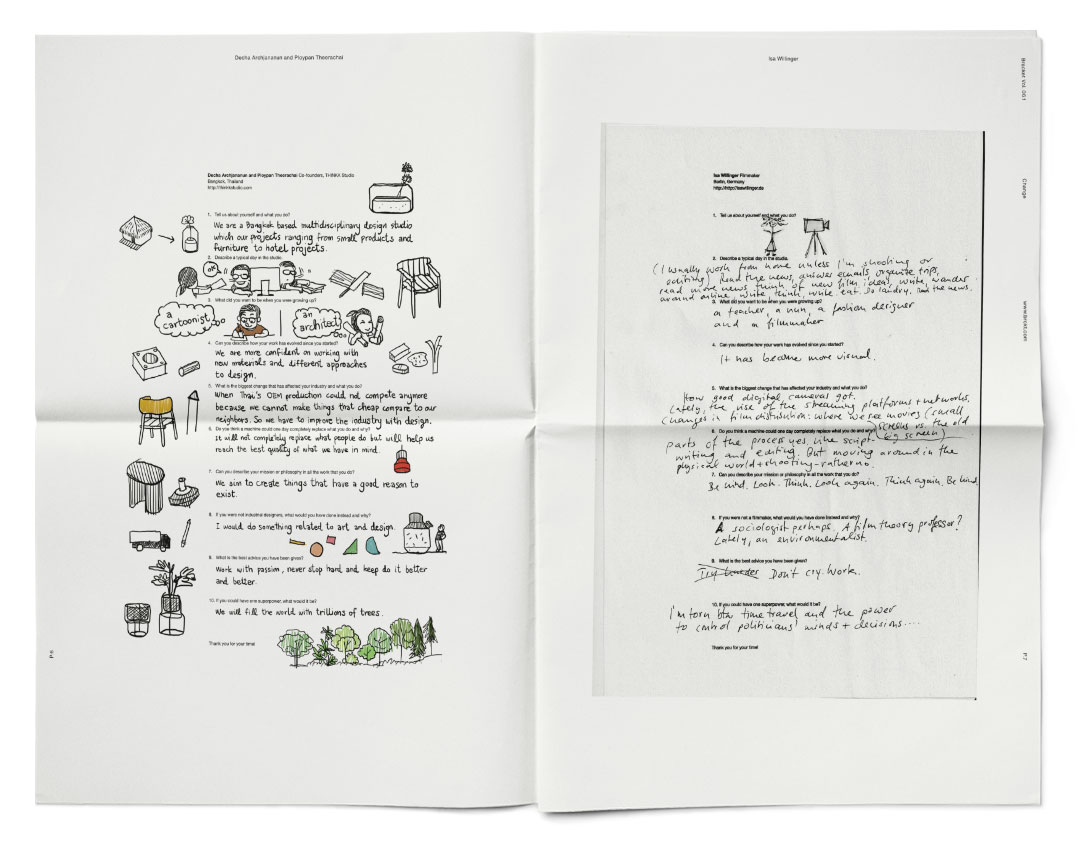 Decha Archjananun and Ploypan Theerachai
Decha Archjananun and Ploypan Theerachai Co-founders, THINKK Studio
Bangkok, Thailand
http://thinkkstudio.com
1. Tell us about yourself and what you do?
We are a Bangkok based multidisciplinary design studio
which our projects ranging from small products and
furniture to hotel projects.
2. Describe a typical day in the studio.
OK!
3. What did you want to be when you were growing up?
a cartoonist
an architect
4. Can you describe how your work has evolved since you started?
We are more confident on working with
new materials and different approaches
to design.
5. What is the biggest change that has affected your industry and what you do?
When Thai's OEM production could not compete anymore
because we cannot make things that cheap compare to our
neighbors. So we have to improve the industry with design.
6. Do you think a machine could one day completely replace what you do and why?
It will not completely replace what people do but will help us
reach the best quality of what we have in mind.
7. Can you describe your mission or philosophy in all the work that you do?
We aim to create things that have a good reason to
exist.
8. If you were not industrial designers, what would you have done instead and why?
I would do something related to art and design.
9. What is the best advice you have been given?
Work with passion, never stop hard and keep do it better
and better.
10. If you could have one superpower, what would it be?
We will fill the world with trillions of trees.
Thank you for your time!
P.6
Isa Willinger
Isa Willinger Filmmaker
Berlin, Germany
http://http://isawillinger.de
1. Tell us about yourself and what you do?
2. Describe a typical day in the studio.
(I usually work from home unless I'm shooting or
editing). Read the news, answer emails, organize trips,
read more news, think of new film ideas, write, wander
around online, write, think, write, eat. Do laundry. Read the news.
3. What did you want to be when you were growing up?
a teacher, a nun, a fashion designer
and a filmmaker
4. Can you describe how your work has evolved since you started?
It has become more visual.
5. What is the biggest change that has affected your industry and what you do?
How good digital cameras got.
Lately, the rise of the streaming platforms + networks,
changes in film distribution: where we see movies (small
screens vs. the old
big screen)
6. Do you think a machine could one day completely replace what you do and why?
parts of the process yes. Like script-
writing and editing. But moving around in the
physical world + shooting - rather no.
7. Can you describe your mission or philosophy in all the work that you do?
Be kind. Look. Think. Look again. Think again. Be kind.
8. If you were not a filmmaker, what would you have done instead and why?
A sociologist perhaps. A film theory professor?
Lately, an environmentalist.
9. What is the best advice you have been given?
Try harder Don't cry. Work.
10. If you could have one superpower, what would it be?
I'm torn btw time travel and the power
to control politicians' minds + decisions....
Thank you for your time!
Bracket Vol. 00:1
Change
P.7